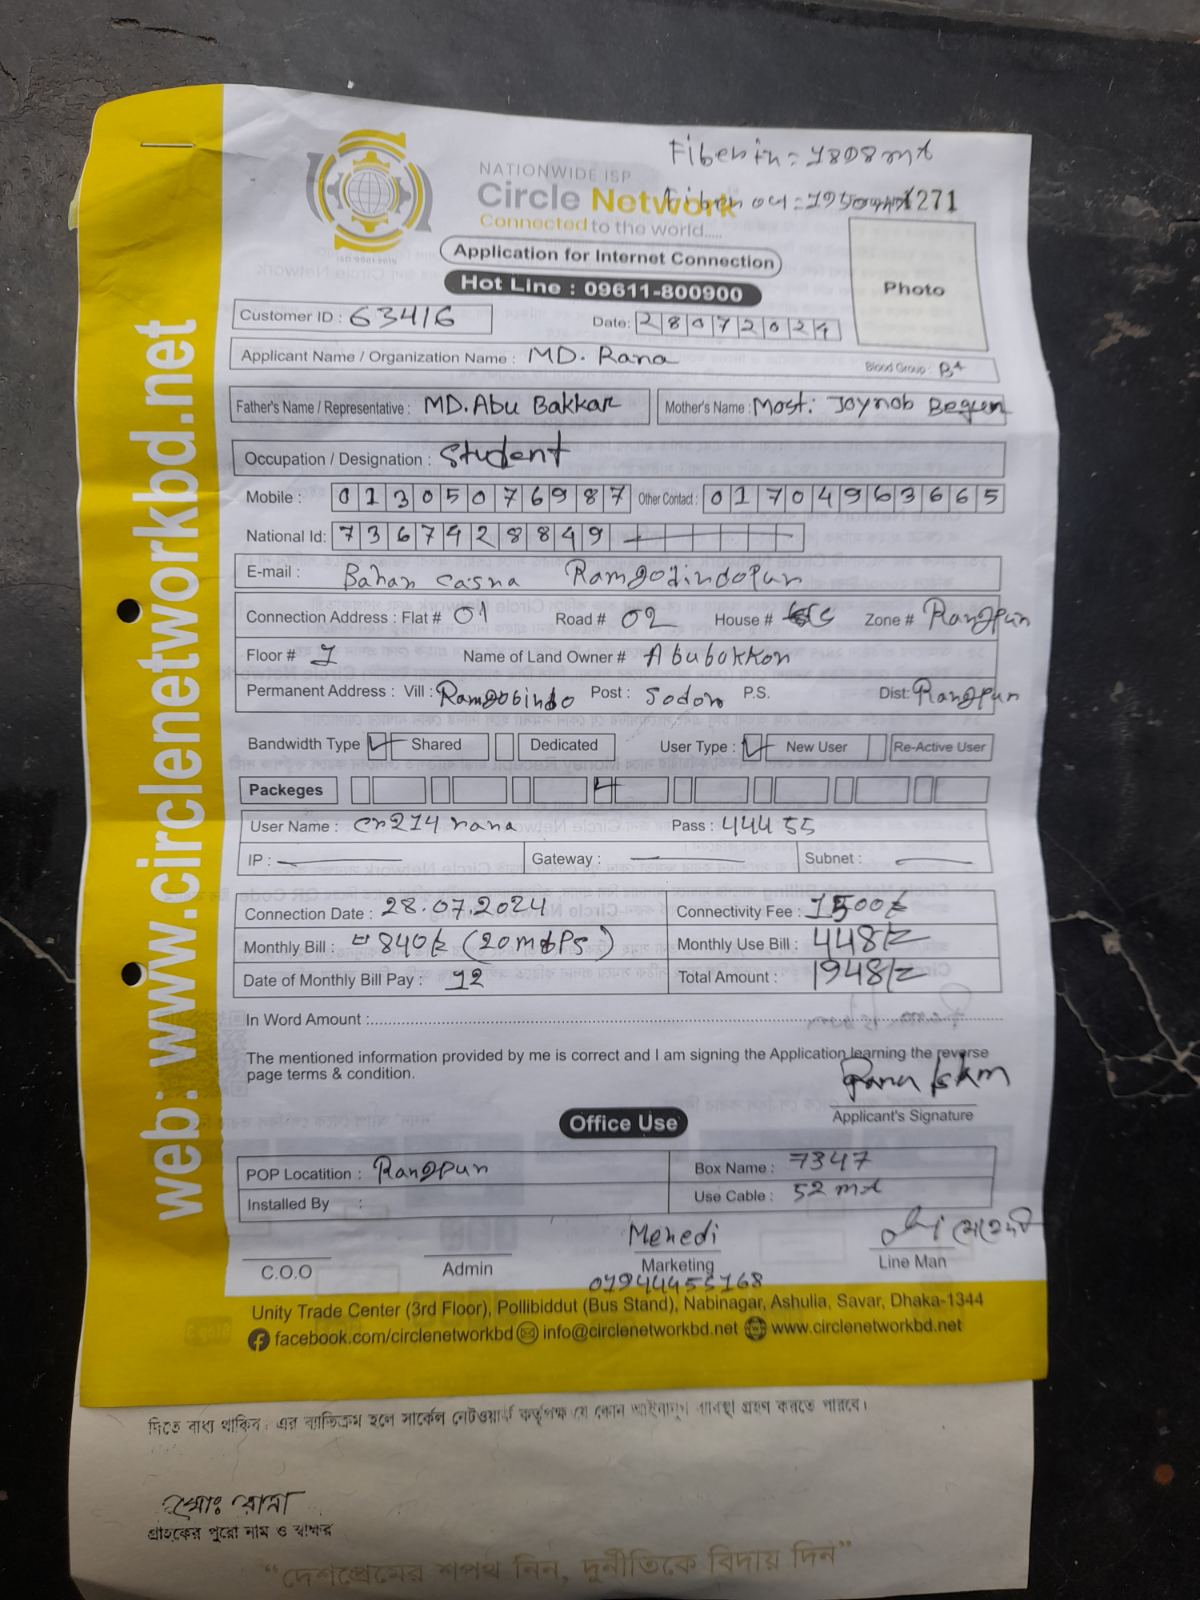 Fiber in = 1808 mt
NATIONWIDE ISP
Circle Network
Fiber out = 1271
Connected to the world.....
Application for Internet Connection
Hot Line : 09611-800900
Photo
Customer ID : 63416
Date: 28072024
Applicant Name / Organization Name : MD. Rana
Blood Group : B+
Father's Name / Representative : MD. Abu Bakkar
Mother's Name : Most: Joynob Begum
Occupation / Designation : Student
Mobile : 01305076987 Other Contact : 01704963665
National Id: 7367428849
E-mail : Bahar casna Ramgobindopur
Connection Address : Flat # 01 Road # 02 House # Zone # Rangpur
Floor # 1 Name of Land Owner # Abubokkor
Permanent Address : Vill : Ramgobindo Post : Sodor P.S. Dist: Rangpur
Bandwidth Type Shared Dedicated User Type : New User Re-Active User
Packeges
User Name : cr214rana Pass : 44455
IP : Gateway : Subnet :
Connection Date : 28.07.2024 Connectivity Fee : 1500/=
Monthly Bill : 840/= (20mbps) Monthly Use Bill : 448/=
Date of Monthly Bill Pay : 12 Total Amount : 1948/=
In Word Amount :
The mentioned information provided by me is correct and I am signing the Application learning the reverse
page terms & condition.
Rana Islam
Applicant's Signature
Office Use
POP Locatition : Rangpur Box Name : 7347
Installed By : Use Cable : 52 mt
Mehedi মেহেদী
C.O.O Admin Marketing Line Man
01944455168
Unity Trade Center (3rd Floor), Pollibiddut (Bus Stand), Nabinagar, Ashulia, Savar, Dhaka-1344
facebook.com/circlenetworkbd info@circlenetworkbd.net www.circlenetworkbd.net
web: www.circlenetworkbd.net
দিতে বাধ্য থাকিব। এর ব্যতিক্রম হলে সার্কেল নেটওয়ার্ক কর্তৃপক্ষ যে কোন আইনানুগ ব্যবস্থা গ্রহণ করতে পারবে।
মোঃ রানা
গ্রাহকের পুরো নাম ও স্বাক্ষর
“দেশপ্রেমের শপথ নিন, দুর্নীতিকে বিদায় দিন”